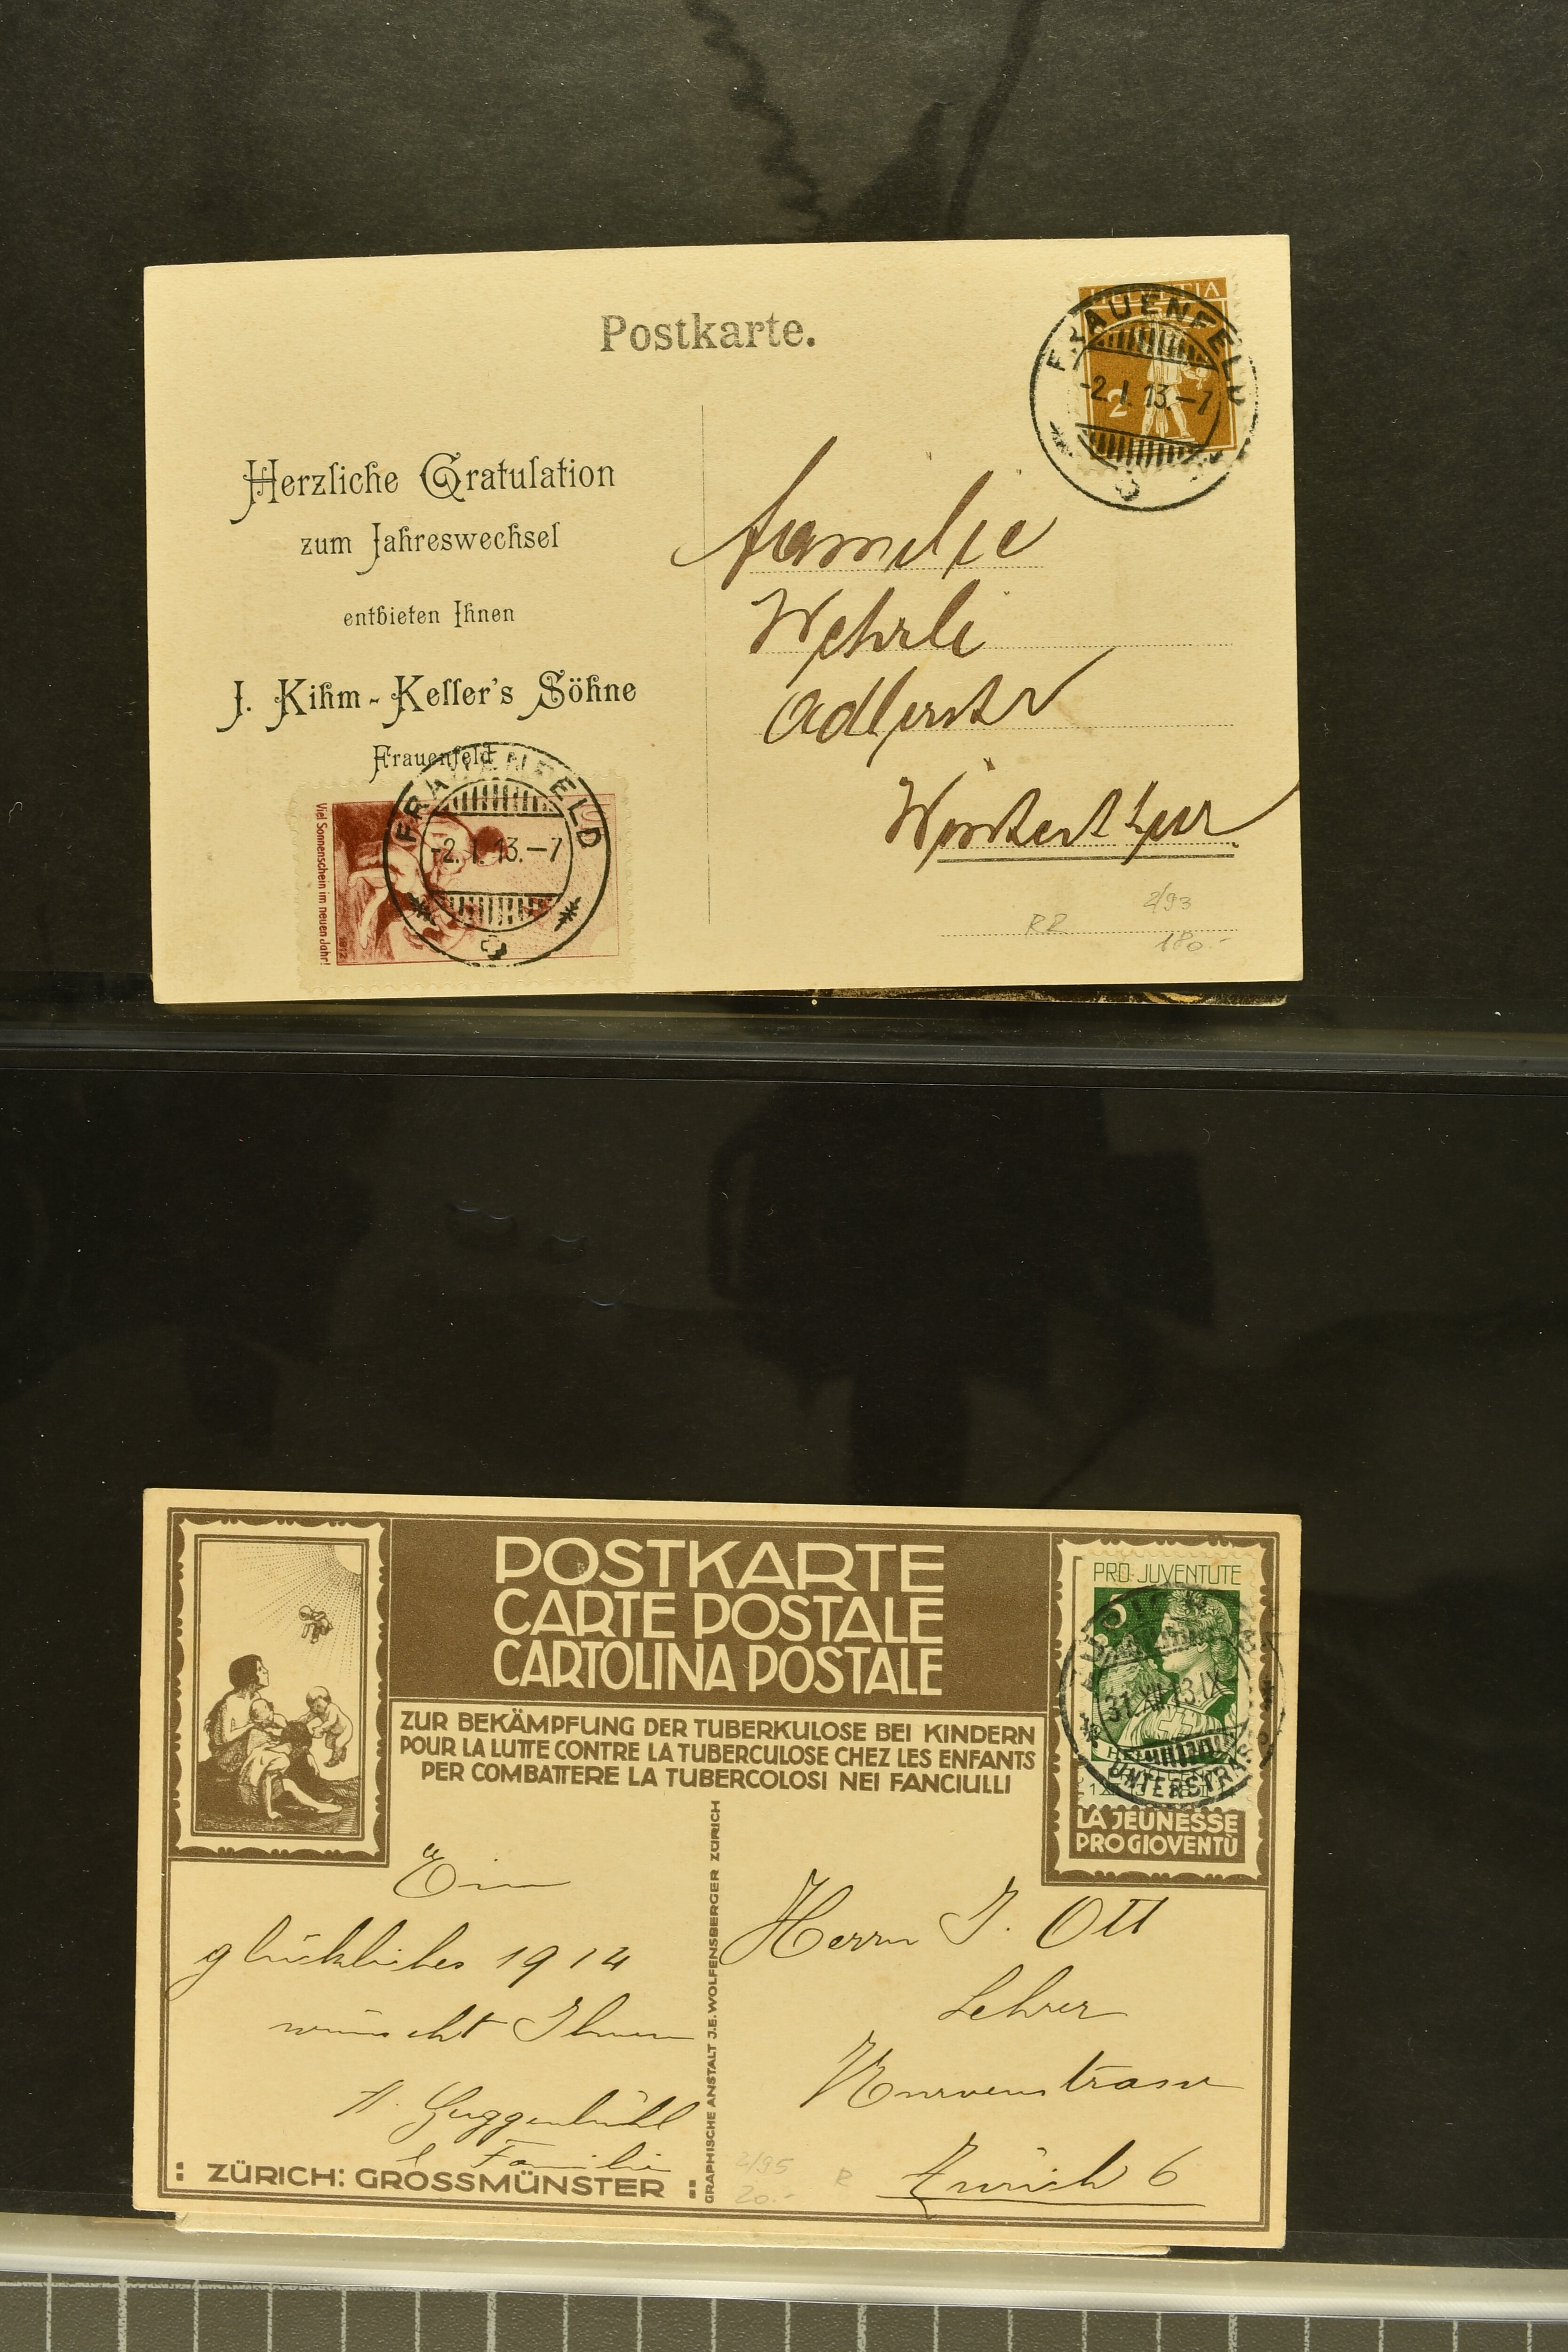 Postkarte.
HELVETIA
2
FRAUENFELD
-2.I.13.-7
Herzliche Gratulation
zum Jahreswechsel
entbieten Ihnen
J. Kihm-Keller's Söhne
Frauenfeld
FRAUENFELD
-2.I.13.-7
Viel Sonnenschein im neuen Jahr!
1912
Familie
Wehrli
Adlerstr
Winterthur
2/93
RZ
180.-
POSTKARTE
CARTE POSTALE
CARTOLINA POSTALE
ZUR BEKÄMPFUNG DER TUBERKULOSE BEI KINDERN
POUR LA LUTTE CONTRE LA TUBERCULOSE CHEZ LES ENFANTS
PER COMBATTERE LA TUBERCOLOSI NEI FANCIULLI
PRO JUVENTUTE
5
31.XII.13.IX
UNTERSTRASS
LA JEUNESSE
PRO GIOVENTÙ
GRAPHISCHE ANSTALT J.E. WOLFENSBERGER ZÜRICH
Ein
glückliches 1914
wünscht Ihnen
H. Guggenbühl
& Familie
Herrn J. Ott
Lehrer
Zürich 6
2/95
R
20.-
: ZÜRICH: GROSSMÜNSTER :